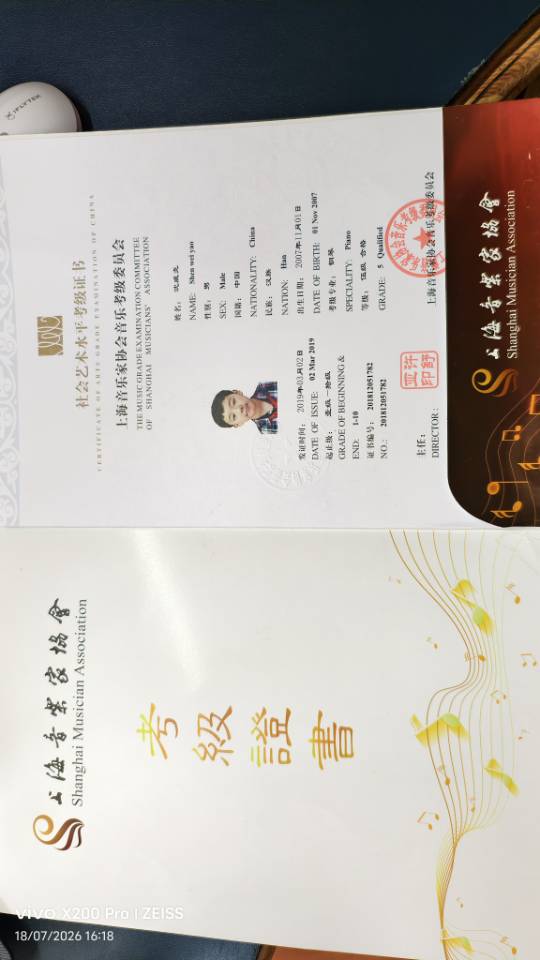 社会艺术水平考级证书
CERTIFICATE OF ARTS GRADE EXAMINATION OF CHINA
上海音乐家协会音乐考级委员会
THE MUSIC GRADE EXAMINATION COMMITTEE
OF SHANGHAI MUSICIANS' ASSOCIATION
姓名:
NAME: Shen wei yao
性别: 男
SEX: Male
国籍: 中国
NATIONALITY: China
民族: 汉族
NATION: Han
出生日期: 2007年11月01日
DATE OF BIRTH: 01 Nov 2007
考级专业: 钢琴
SPECIALITY: Piano
等级: 伍级 合格
GRADE: 5 Qualified
发证时间: 2019年03月02日
DATE OF ISSUE: 02 Mar 2019
起止级: 壹级－拾级
GRADE OF BEGINNING &
END: 1-10
证书编号: 201812051782
NO.: 201812051782
主任:
DIRECTOR:
亚许
印舒
上海音乐家协会音乐考级委员会
上海音樂家協會
Shanghai Musician Association
上海音樂家協會
Shanghai Musician Association
考級證書
iFLYTEK
vivo X200 Pro | ZEISS
18/07/2026 16:18